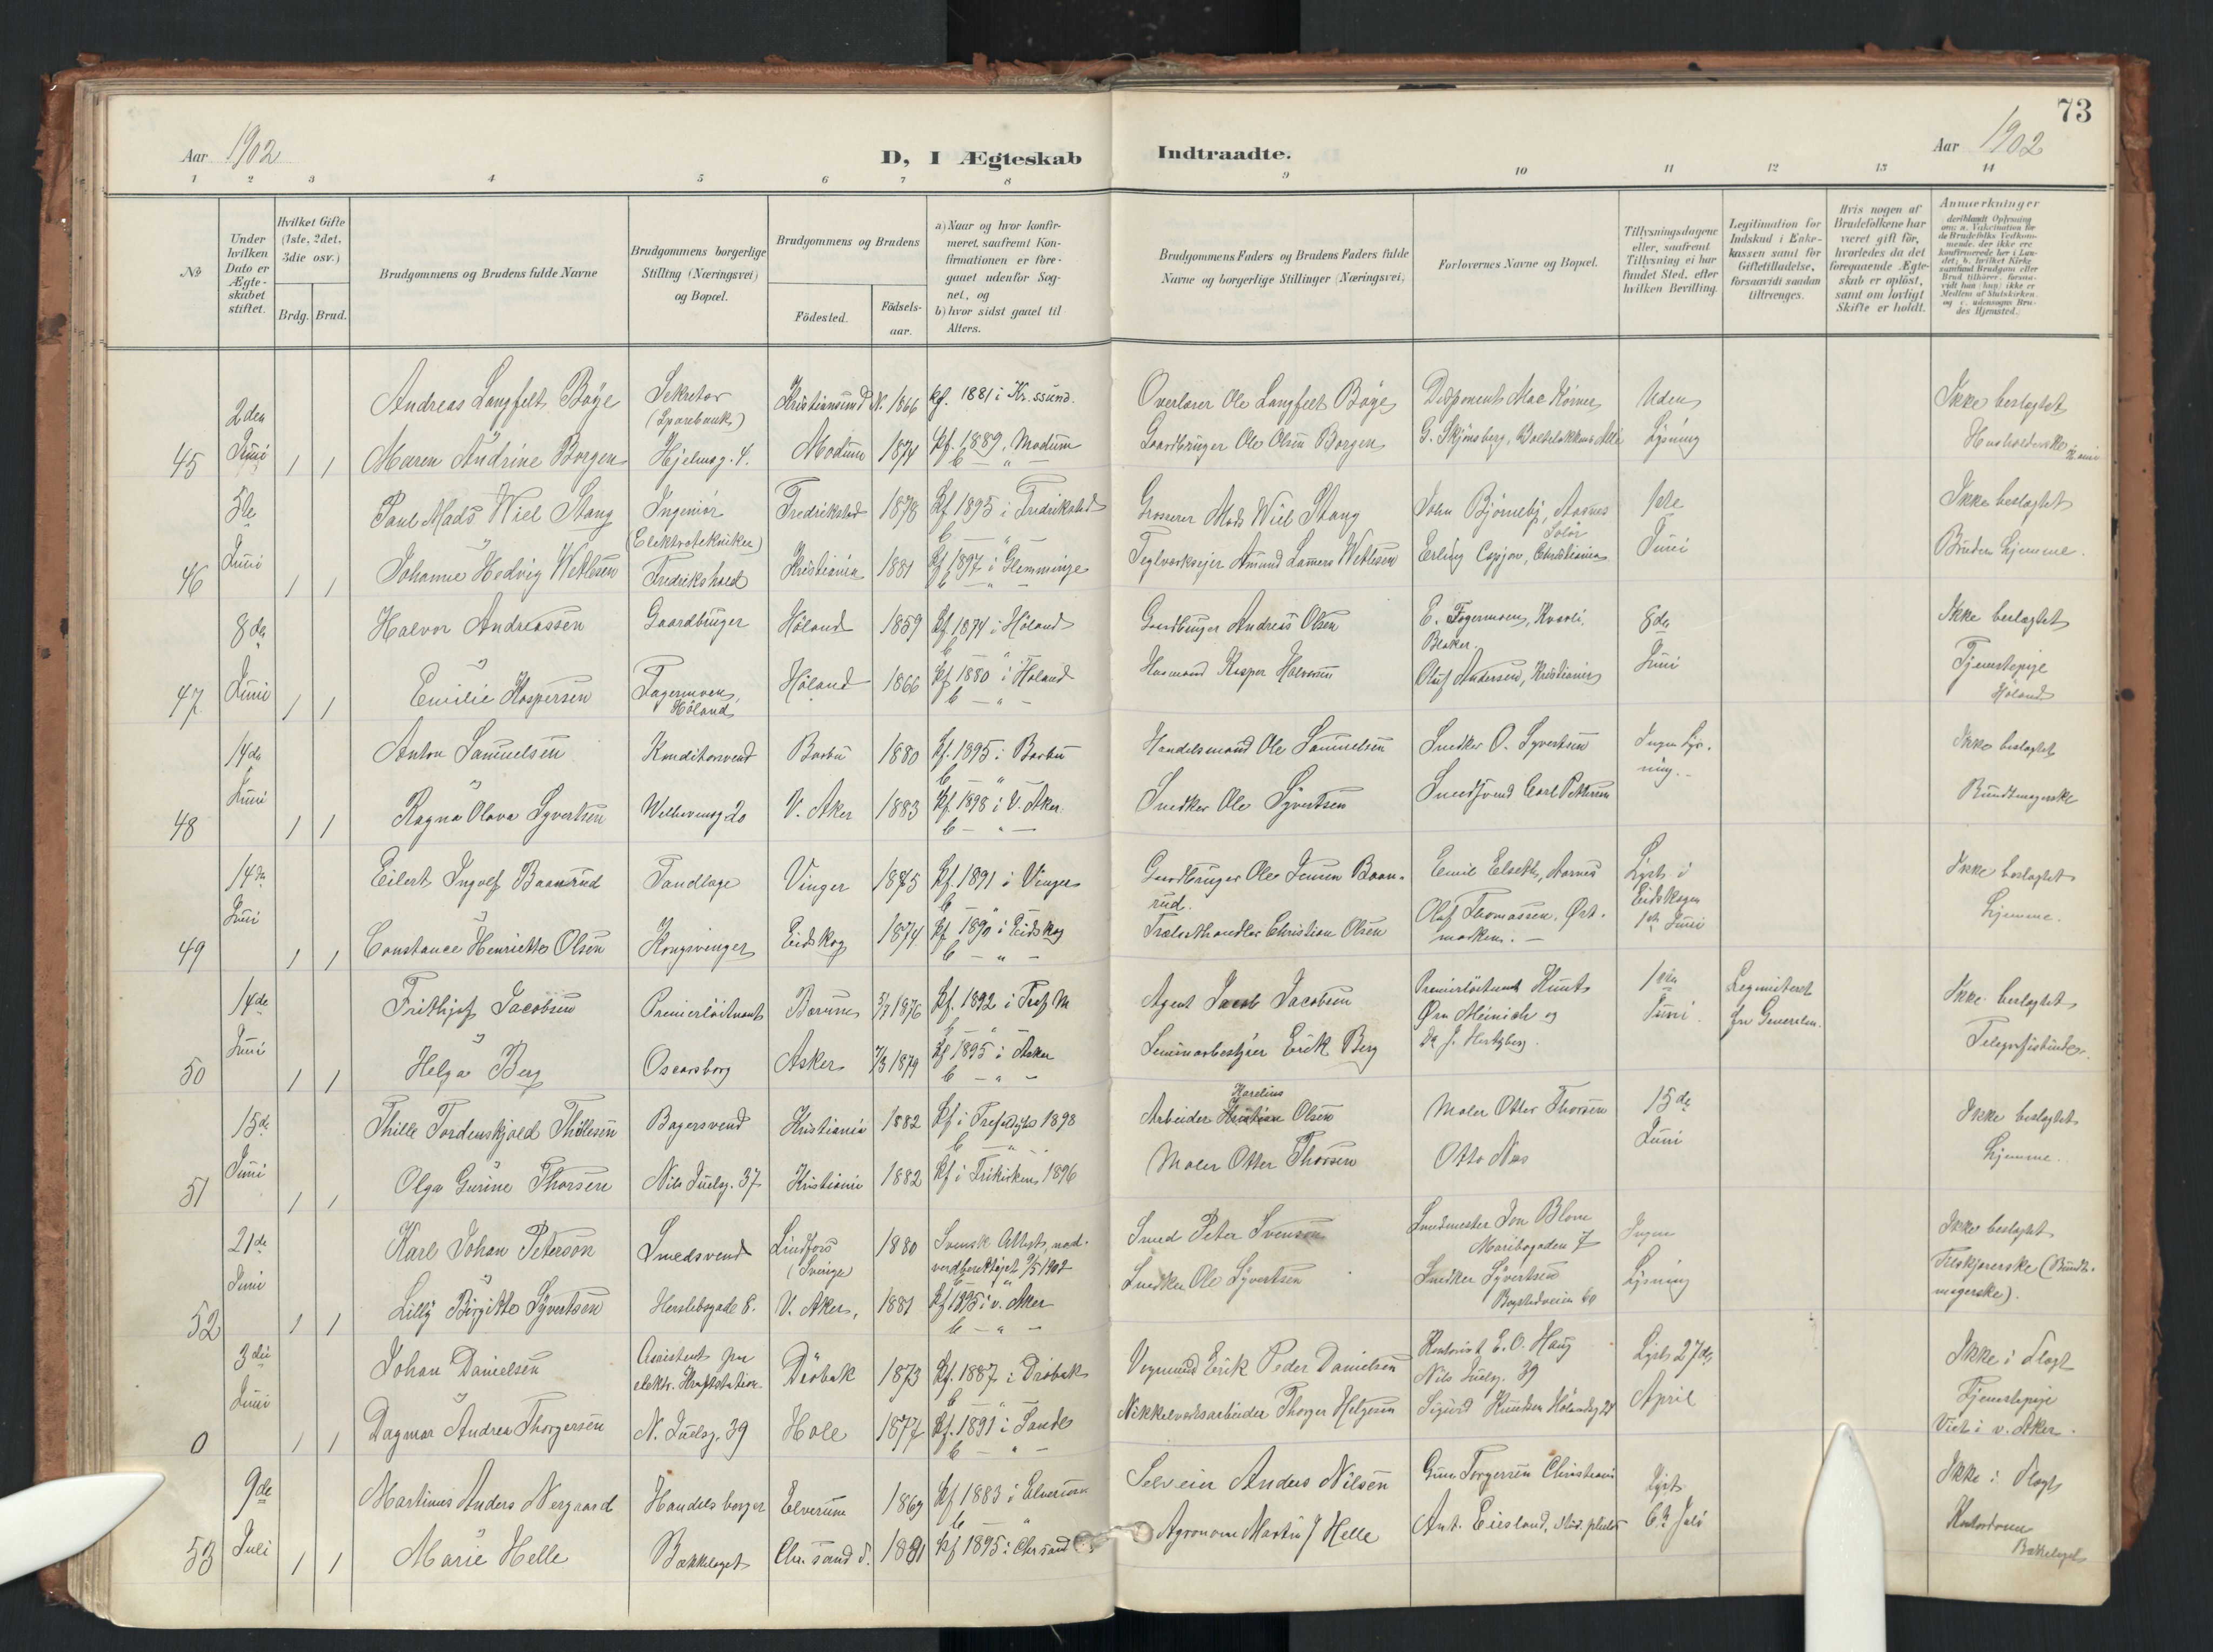 73
Aar 1902
D, I Ægteskab Indtraadte.
Aar 1902
1 2 3 4 5 6 7 8 9 10 11 12 13 14
No
Under hvilken Dato er Ægteskabet stiftet.
Hvilket Gifte (1ste, 2det, 3die osv.)
Brdg. Brud.
Brudgommens og Brudens fulde Navne
Brudgommens borgerlige Stilling (Næringsvei) og Bopæl.
Brudgommens og Brudens
Födested.
Födselsaar.
a) Naar og hvor konfirmeret, saafremt Konfirmationen er foregaaet udenfor Sognet, og
b) hvor sidst gaaet til Alters.
Brudgommens Faders og Brudens Faders fulde Navne og borgerlige Stillinger (Næringsvei)
Forlovernes Navne og Bopæl.
Tillysningsdagene eller, saafremt Tillysning ei har fundet Sted, efter hvilken Bevilling.
Legitimation for Indskud i Enkekassen samt for Giftetilladelse, forsaavidt saadan tiltrænges.
Hvis nogen af Brudefolkene har været gift för, hvorledes da det foregaaende Ægteskab er oplöst, samt om lovligt Skifte er holdt.
Anmærkninger
deriblandt Oplysning om: a. Vakcination for de Brudefolks Vedkommende, der ikke ere konfirmerede her i Landet; b. hvilket Kirkesamfund Brudgom eller Brud tilhörer, forsaavidt han (hun) ikke er Medlem af Statskirken, og c. udensogns Brudes Hjemsted.
45 2den Juni 1 1
Andreas Langfelt Böye Sekretær (Sparebank) Kristiansund N. 1866 kf. 1881 i Kr.ssund. Overlærer Ole Langfelt Böye Disponent Mac Körner Uden Ikke beslægtet
Maren Andrine Borgen Hjelmsg. 4. Modum 1874 kf. 1889, Modum Gaardbruger Ole Olsen Borgen G. Skjönsberg, Lysning Husholderske
46 5te Juni 1 1
Paul Mads Wiel Stang Ingeniör (Elektrotekniker) Fredrikstad 1878 kf 1895 i Fredrikstad Grosserer Mads Wiel Stang John Björneby, Aasnes Solör 1ste Ikke beslægtet
Johanne Hedvig Wetlesen Fredrikshald Kristiania 1881 kf 1897 i Glemminge Teglværkseier Amund Lamers Wetlesen Erling Christiania Juni Brudens hjemme.
47 8de Juni 1 1
Halvor Andreassen Gaardbruger Höland 1859 kf. 1874 i Höland Gaardbruger Andreas Olsen E. Fagermoen, Blaker. 8de Ikke beslægtet
Emilie Kaspersen Fagermoen, Höland Höland 1866 kf 1880 i Höland Husmand Kasper Halvorsen Oluf Andersen, Kristiania Juni Tjenestepige Höland
48 14de Juni 1 1
Anton Samuelsen Konditorsvend Barbu 1880 kf. 1895 i Barbu Handelsmand Ole Samuelsen Snedker O. Syvertsen Ingen Lysning. Ikke beslægtet
Ragna Olava Syvertsen Welhavensg 20 V. Aker 1883 kf. 1898 i V. Aker. Snedker Ole Syvertsen Carl Pettersen Bundtmagerske
49 14de Juni 1 1
Eilert Ingolf Baanrud Tandlæge Vinger 1875 kf. 1891 i Vinger Gaardbruger Ole Jensen Baanrud. Emil Elseth, Aasnes Lyst i Eidskogen 1ste Juni Ikke beslægtet
Constance Henriette Olsen Kongsvinger Eidskog 1874 kf 1890 i Eidskog Trælasthandler Christian Olsen Oluf Thomassen, Østmarken. Hjemme.
50 14de Juni 1 1
Frithjof Jacobsen Premierlöitnant Bærum 1876 kf. 1892 i Tref. M Agent Jacob Jacobsen Premierlöitnant 1ste Juni. Legimiteret fra Generalen. Ikke beslægtet
Helga Berg Oscarsborg Asker 1879 kf 1895 i Asker Seminarbestyrer Erik Berg Dr J. Hertzberg. Telegrafistinde.
51 15de Juni 1 1
Thille Tordenskjold Thillesen Bagersvend Kristiania 1882 Kf i 1898 Arbeider Karelius Kristian Olsen Maler Otter Thorsen 15de Juni Ikke beslægtet
Olga Gurine Thorsen Nils Juelsg. 37 Kristiania 1882 kf i Frikirken 1896 Maler Otter Thorsen Otto Næs Hjemme.
52 21de Juni 1 1
Karl Johan Peterson Smedsvend Lindfors (Sverige) 1880 Svensk Attest, nadverdberettiget 9/5 1902 Smed Peter Svensen Smedmester Jon Blom Maribogaden 7 Ingen Ikke beslægtet
Lilly Birgitte Syvertsen Herslebsgade 8. V. Aker, 1881 kf 1895 i v. Aker Snedker Ole Syvertsen Snedker Syvertsen Bogstadveien 60 Lysning Treskjærerske (Bundtmagerske).
0 3die Juni 1 1
Johan Danielsen Assistent paa elektr. Kraftstation. Dröbak 1873 kf. 1887 i Dröbak Vognmand Erik Peder Danielsen Kontorist E. O. Haug Nils Juelsg. 39 Lyst 27de Ikke i Slægt
Dagmar Andrea Thorgersen N. Juelsg. 39 Hole 1877 kf. 1891 i Sande Nikkelverksarbeider Thorger Helgesen Sigurd Knudsen April Tjenestepige Viet i v. Aker.
53 9de Juli 1 1
Martinus Anders Nergaard Handelsborger Elverum 1869 kf 1883 i Elverum Selveier Anders Nilsen Torgersen Christiania Lyst Ikke i Slægt
Marie Helle Bækkelaget Chr. sand S. 1881 kf 1895 i Chr sand Agronom Martin J Helle Ant. Eiesland, 6te Juli Kontordame Bækkelaget